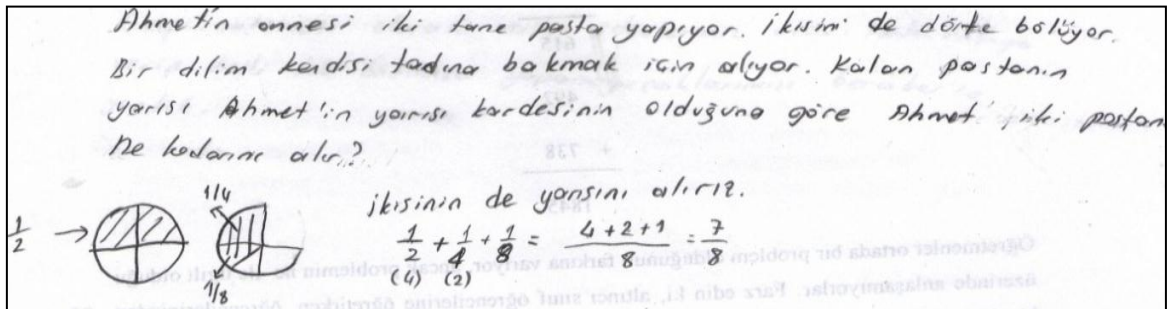 Ahmet'in annesi iki tane pasta yapıyor. İkisini de dörte bölüyor.
Bir dilim kendisi tadına bakmak için alıyor. Kalan pastanın
yarısı Ahmet'in yarısı kardesinin olduğuna göre Ahmet iki pastan
ne kadarını alır?
ikisinin de yarısını alırız.
1/4
1/2 →
1/2 + 1/4 + 1/8 = 4+2+1/8 = 7/8
(4) (2)
1/8